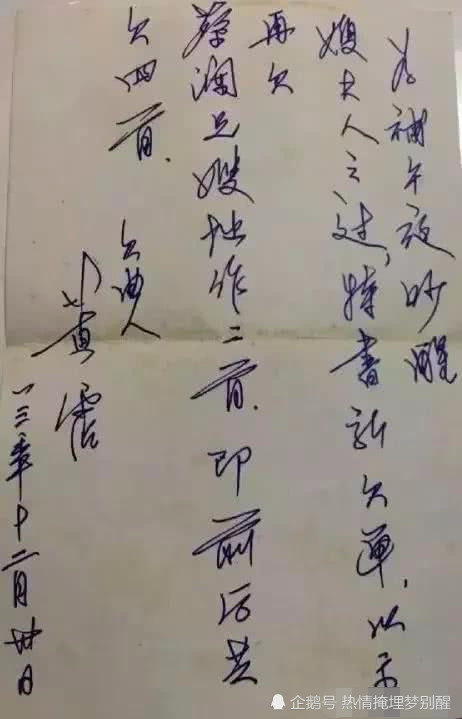 为补午夜吵醒
嫂夫人之过,特书新欠单,以示
再欠
蔡澜兄嫂拙作二首.即前后共
欠四首.
欠曲人
黄霑
一三年十二月卅日
企鹅号 热情掩埋梦别醒